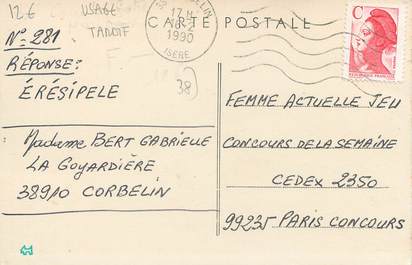 12€ USAGE
TARDIF
CARTE POSTALE
CORBELIN
17 H
1990
ISERE
C
N° 281
RÉPONSE:
ÉRÉSIPELE
38
FEMME ACTUELLE JEU
Madame BERT GABRIELLE
CONCOURS DE LA SEMAINE
LA GOYARDIÈRE
CEDEX 2350
38910 CORBELIN
99235 PARIS CONCOURS